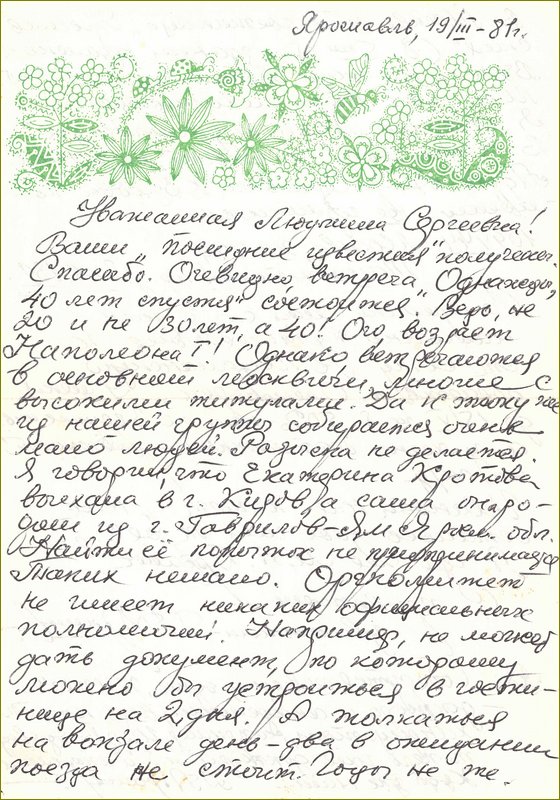 Ярославль, 19/III-81г.
Уважаемая Людмила Сергеевна!
Ваши „последние известия" получены.
Спасибо. Очевидно, встреча „Однажды,
40 лет спустя" состоится. Ведь, не
20 и не 30 лет, а 40! Ого, возраст
Наполеона I! Однако встречаются
в основном москвичи, многие с
высокими титулами. Да к тому же
из нашей группы собирается очень
мало людей. Розыска не делается.
Я говорил, что Екатерина Кротова
выехала в г. Киров, а сама она ро-
дом из г. Гаврилов-Ям Яросл. обл.
Найти её попыток не предпринимается.
Таких немало. Оргкомитет
не имеет никаких официальных
полномочий. Например, не может
дать документ, по которому
можно бы устроиться в гости-
нице на 2 дня. А толкаться
на вокзале день-два в ожидании
поезда не стоит. Годы не же.